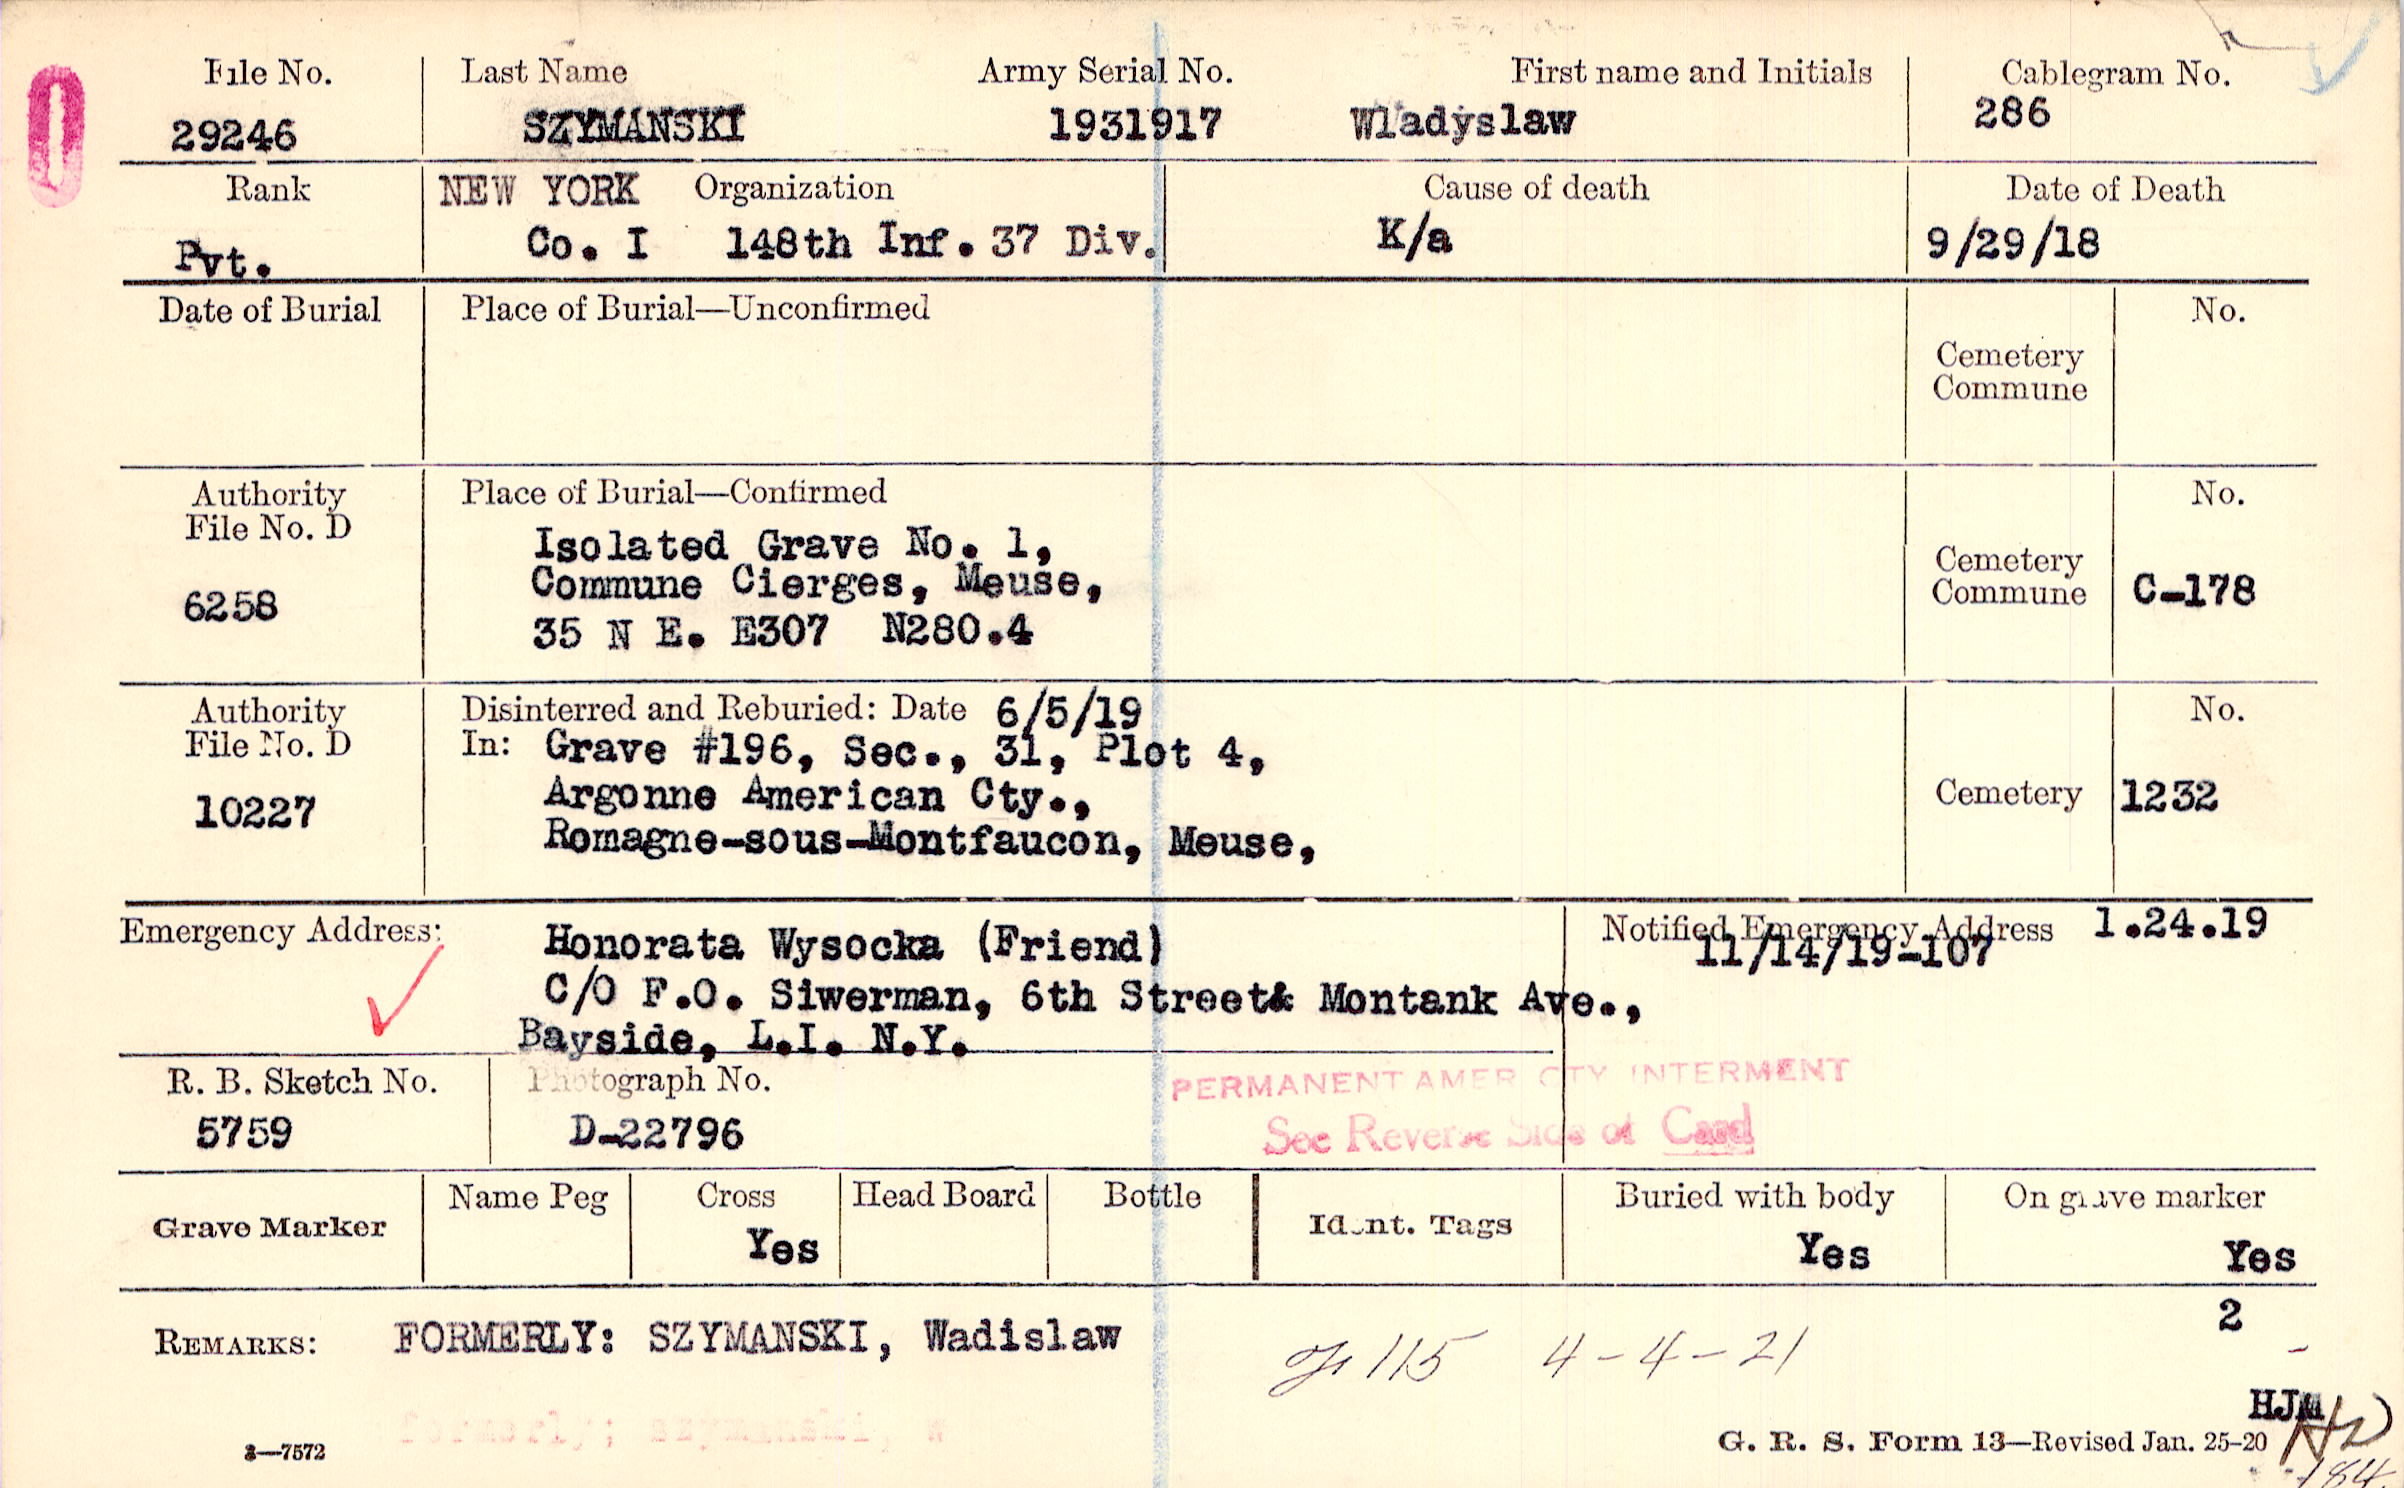 File No. Last Name Army Serial No. First name and Initials Cablegram No.
29246 SZYMANSKI 1931917 Wladyslaw 286
Rank NEW YORK Organization Cause of death Date of Death
Pvt. Co. I 148th Inf. 37 Div. K/a 9/29/18
Date of Burial Place of Burial—Unconfirmed No.
Cemetery
Commune
Authority Place of Burial—Confirmed No.
File No. D
Isolated Grave No. 1,
Commune Cierges, Meuse, Cemetery
6258 Commune C-178
35 N E. E307 N280.4
Authority Disinterred and Reburied: Date 6/5/19 No.
File No. D In: Grave #196, Sec., 31, Plot 4,
10227 Argonne American Cty., Cemetery 1232
Romagne-sous-Montfaucon, Meuse,
Emergency Address: Notified Emergency Address 1.24.19
Honorata Wysocka (Friend) 11/14/19-107
C/O F.O. Siwerman, 6th Street& Montank Ave.,
Bayside, L.I. N.Y.
R. B. Sketch No. Photograph No. PERMANENT AMER CTY INTERMENT
5759 D-22796 See Reverse Side of Card
Grave Marker Name Peg Cross Head Board Bottle Ident. Tags Buried with body On grave marker
Yes Yes Yes
2
REMARKS: FORMERLY: SZYMANSKI, Wadislaw
115 4-4-21
HJM
formerly; szymanski, w
3—7572 G. R. S. Form 13—Revised Jan. 25-20
184